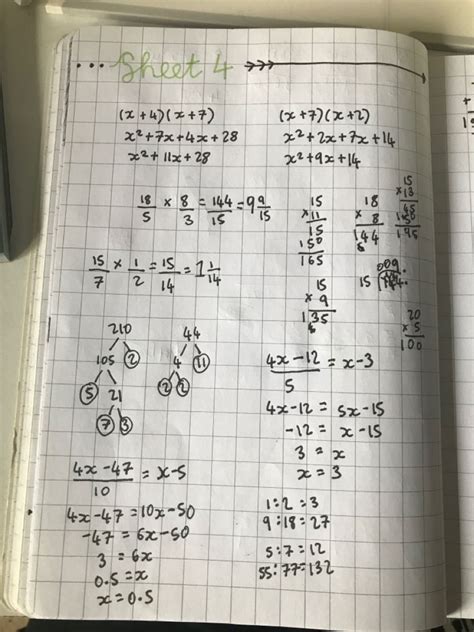 Sheet 4
(x+4)(x+7)
x²+7x+4x+28
x²+11x+28
(x+7)(x+2)
x²+2x+7x+14
x²+9x+14
18/5 × 8/3 = 144/15 = 9 9/15
15
×11
15
150
165
18
×8
144
6
15
×13
45
150
195
15
×9
135
15/7 × 1/2 = 15/14 = 1 1/14
20
×5
100
210
105 2
5 21
7 3
44
4 11
2 2
4x-12/5 = x-3
4x-12 = 5x-15
-12 = x-15
3 = x
x = 3
4x-47/10 = x-5
4x-47 = 10x-50
-47 = 6x-50
3 = 6x
0.5 = x
x = 0.5
1:2 = 3
9:18 = 27
5:7 = 12
55:77 = 132